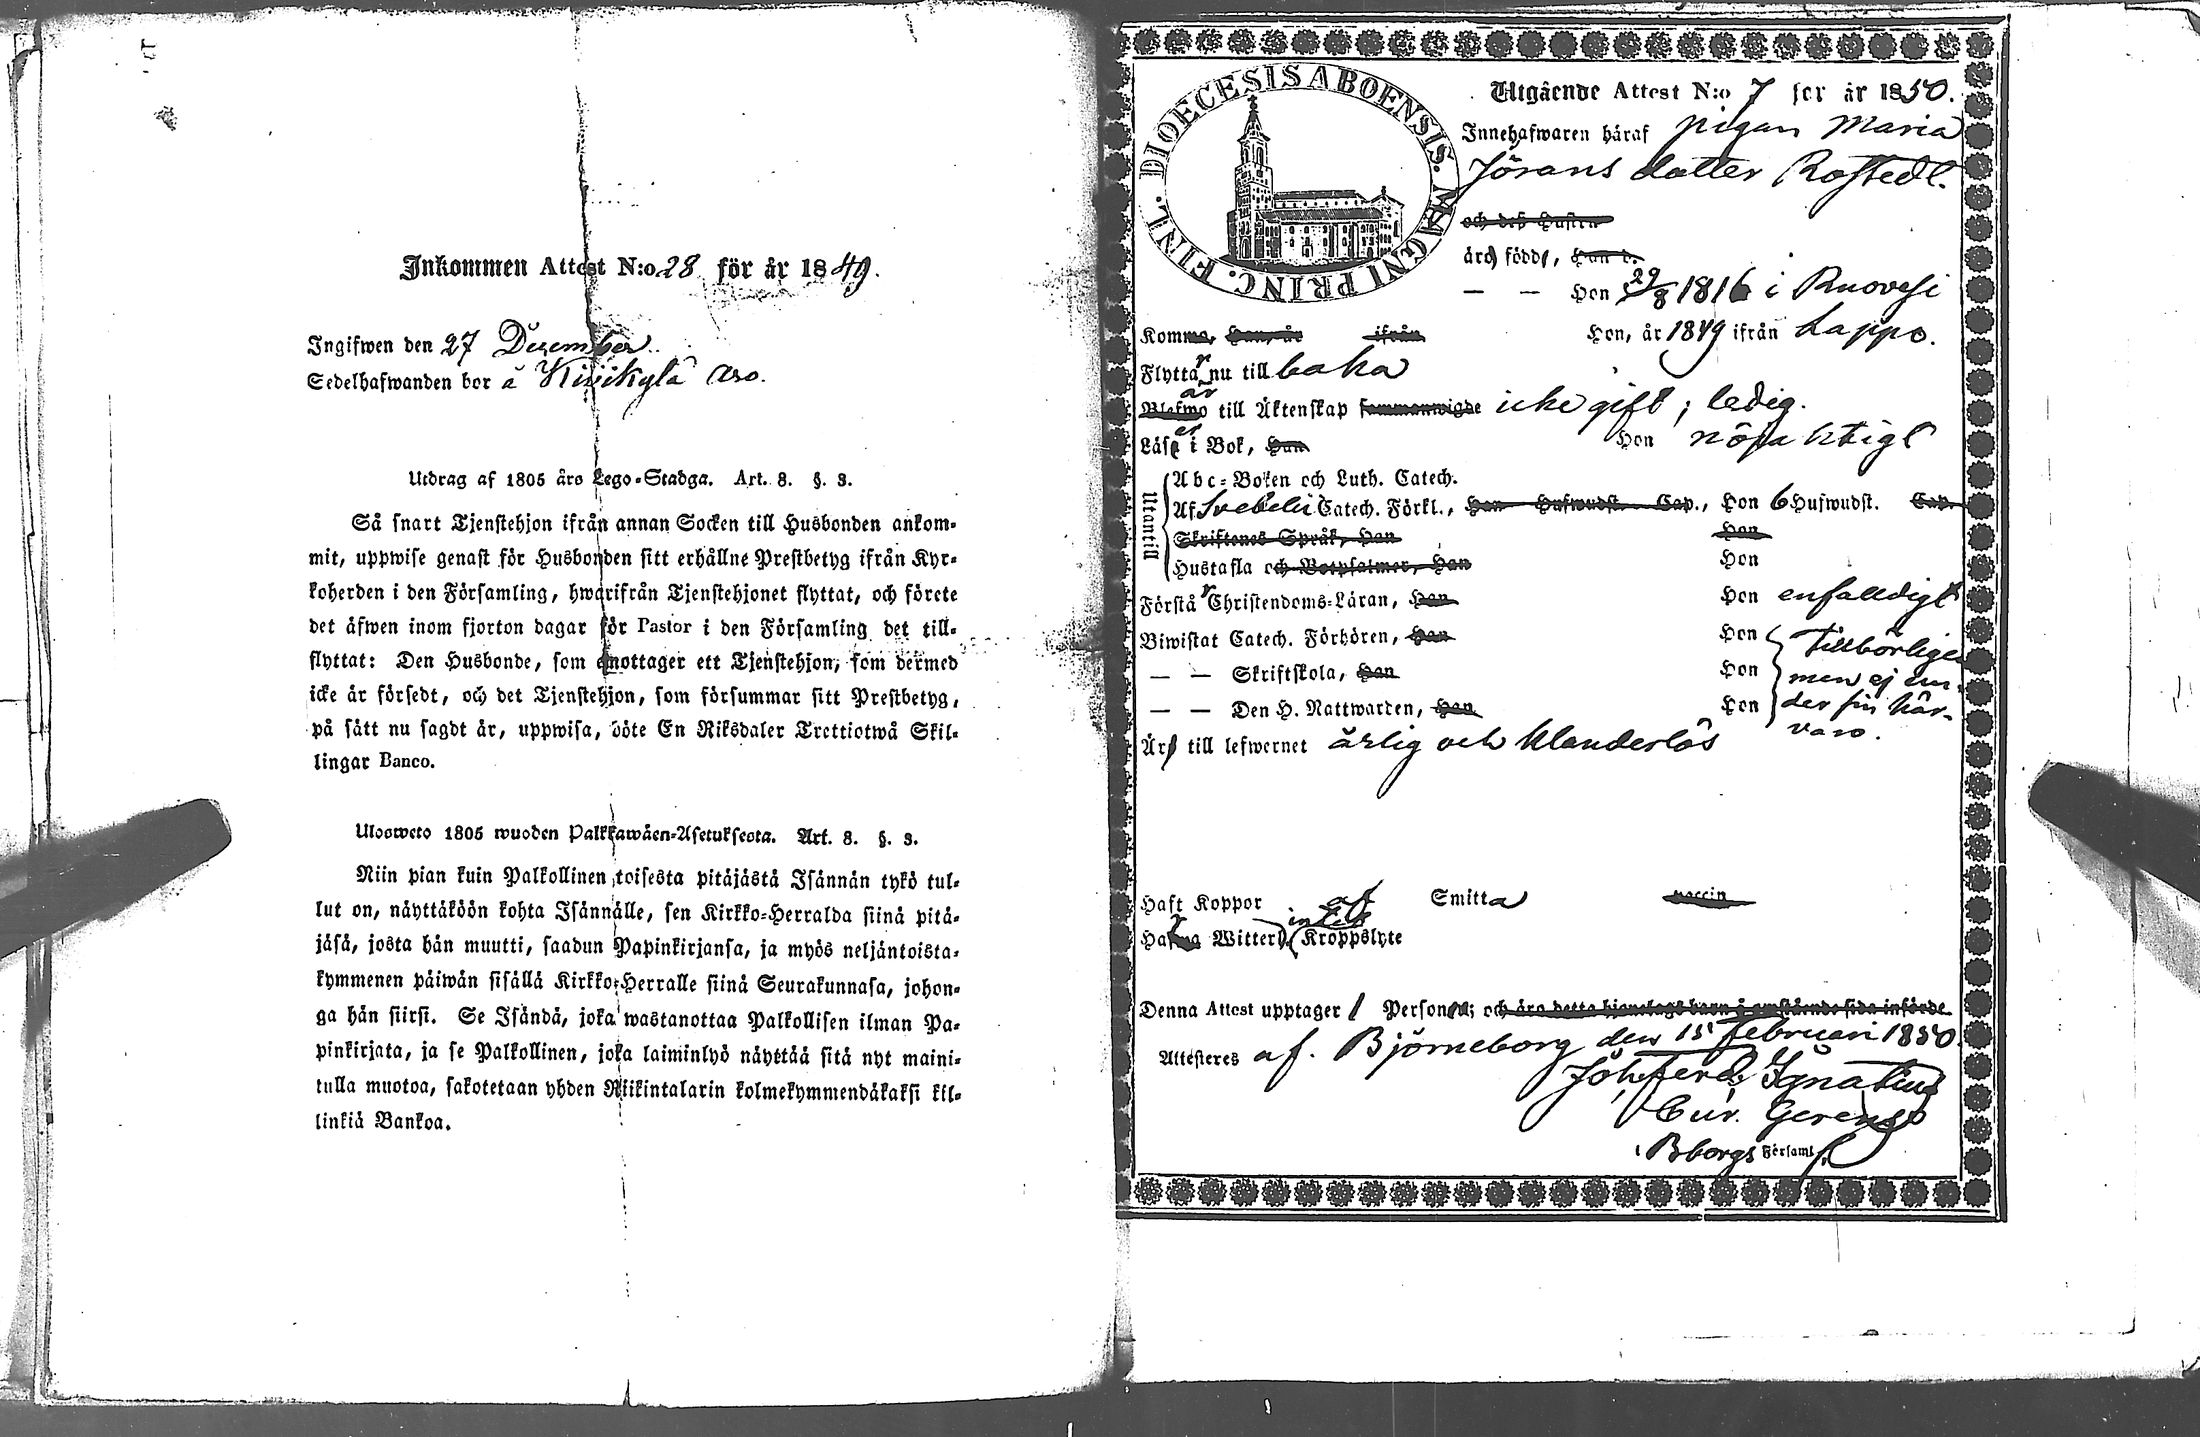 Inkommen Attest N:o 28 för år 1849.
Ingifwen den 27 December
Sedelhafwanden bor å Kivikylä
Utdrag af 1805 års Lego-Stadga. Art. 8. §. 3.
Så snart Tjenstehjon ifrån annan Socken till Husbonden ankom-
mit, uppwise genast för Husbonden sitt erhållne Prestbetyg ifrån Kyr-
koherden i den Församling, hwarifrån Tjenstehjonet flyttat, och förete
det äfwen inom fjorton dagar för Pastor i den Församling det till-
flyttat: Den Husbonde, som emottager ett Tjenstehjon, som dermed
icke är försedt, och det Tjenstehjon, som försummar sitt Prestbetyg,
på sätt nu sagdt är, uppwisa, böte En Riksdaler Trettiotwå Skil-
lingar Banco.
Ulosweto 1805 wuoden Palkkawäen-Asetuksesta. Art. 8. §. 3.
Niin pian kuin Palkollinen toisesta pitäjästä Isännän tykö tul-
lut on, näyttäköön kohta Isännälle, sen Kirkko-Herralda siinä pitä-
jäsä, josta hän muutti, saadun Papinkirjansa, ja myös neljäntoista-
kymmenen päiwän sisällä Kirkko-Herralle siinä Seurakunnasa, johon-
ga hän siirsi. Se Isändä, joka wastanottaa Palkollisen ilman Pa-
pinkirjata, ja se Palkollinen, joka laiminlyö näyttää sitä nyt maini-
tulla muotoa, sakotetaan yhden Riikintalarin kolmekymmendäkaksi kil-
linkiä Bankoa.
DIOECESIS ABOENSIS. MAGNI PRINC. FINL.
Utgående Attest N:o 7 for år 1850.
Innehafwaren häraf pigan Maria
Jörans dotter Rostedt.
och deß Hustru
är född, Han d.
— — Hon 29/8 1816 i Ruovesi
Komma, Han, år ifrån Hon, år 1849 ifrån Lappo.
Flyttar nu till baka
är till Äktenskap sammanwigde icke gift, ledig.
Läser i Bok, Han Hon nöjaktigt
Utantill
Abc-Boken och Luth. Catech.
Af Svebelii Catech. Förkl., Han Hufwudst. Cap., Hon 6 Hufwudst. Cap.
Skriftenes Språk, Han Hon
Hustafla och Botpsalmer, Han Hon
Förstår Christendoms-Läran, Han Hon enfaldigt
Biwistat Catech. Förhören, Han Hon tillbörligen
— — Skriftskola, Han Hon men ej un-
— — Den H. Nattwarden, Han Hon der sin här-
varo.
Är till lefwernet ärlig och klanderlös
Haft Koppor af Smitta vaccin
Witterl. intet Kroppslyte
Denna Attest upptager 1 Person; och äro detta hjonelags barn å omstående sida införde
Attesteras af. Björneborg den 15 februari 1850.
Joh. Ferd. Ignatius
Cur. Gerens
Bborgs Församl.